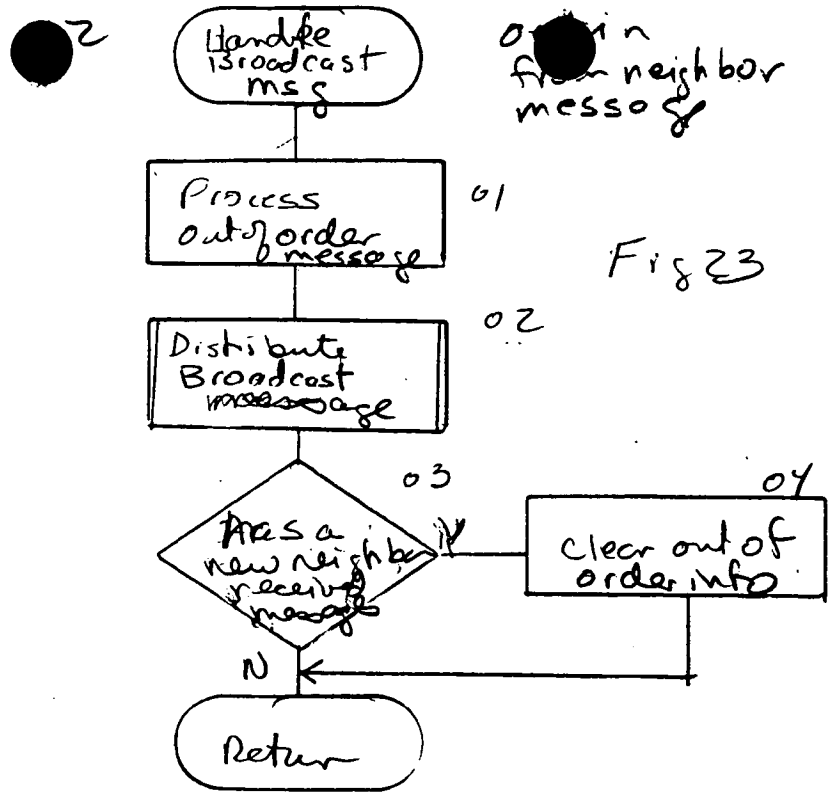 2
Handke
Broadcast
msg
in
from neighbor
message
Process
01
out of order
message
Fig 23
02
Distribute
Broadcast
message
03
04
Has a
Y
new neighbor
received
message
clear out of
order info
N
Return